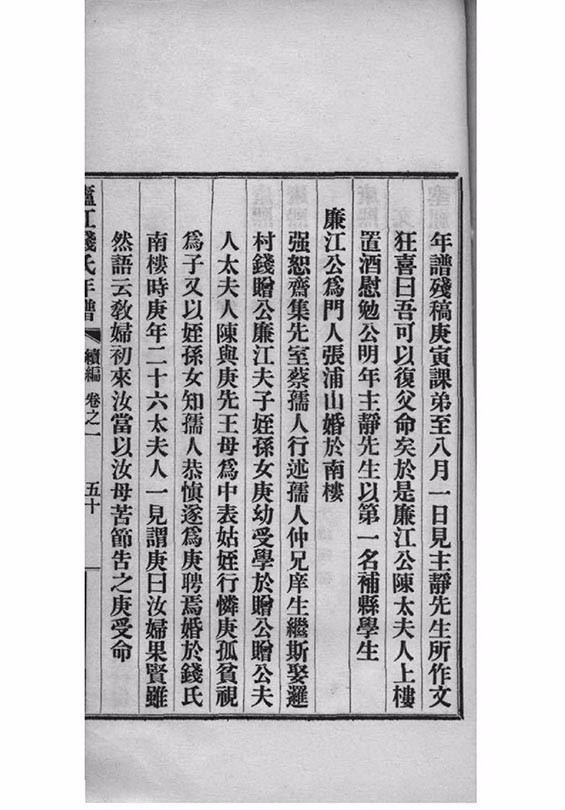 年譜殘稿庚寅課弟至八月一日見主靜先生所作文
狂喜曰吾可以復父命矣於是廉江公陳太夫人上樓
置酒慰勉公明年主靜先生以第一名補縣學生
廉江公爲門人張浦山婚於南樓
强恕齋集先室蔡孺人行述孺人仲兄庠生繼斯娶邏
村錢贈公廉江夫子姪孫女庚幼受學於贈公贈公夫
人太夫人陳與庚先王母爲中表姑姪行憐庚孤貧視
爲子又以姪孫女知孺人恭慎遂爲庚聘焉婚於錢氏
南樓時庚年二十六太夫人一見謂庚曰汝婦果賢雖
然語云敎婦初來汝當以汝母苦節吿之庚受命
廬江錢氏年譜 續編 卷之一 五十